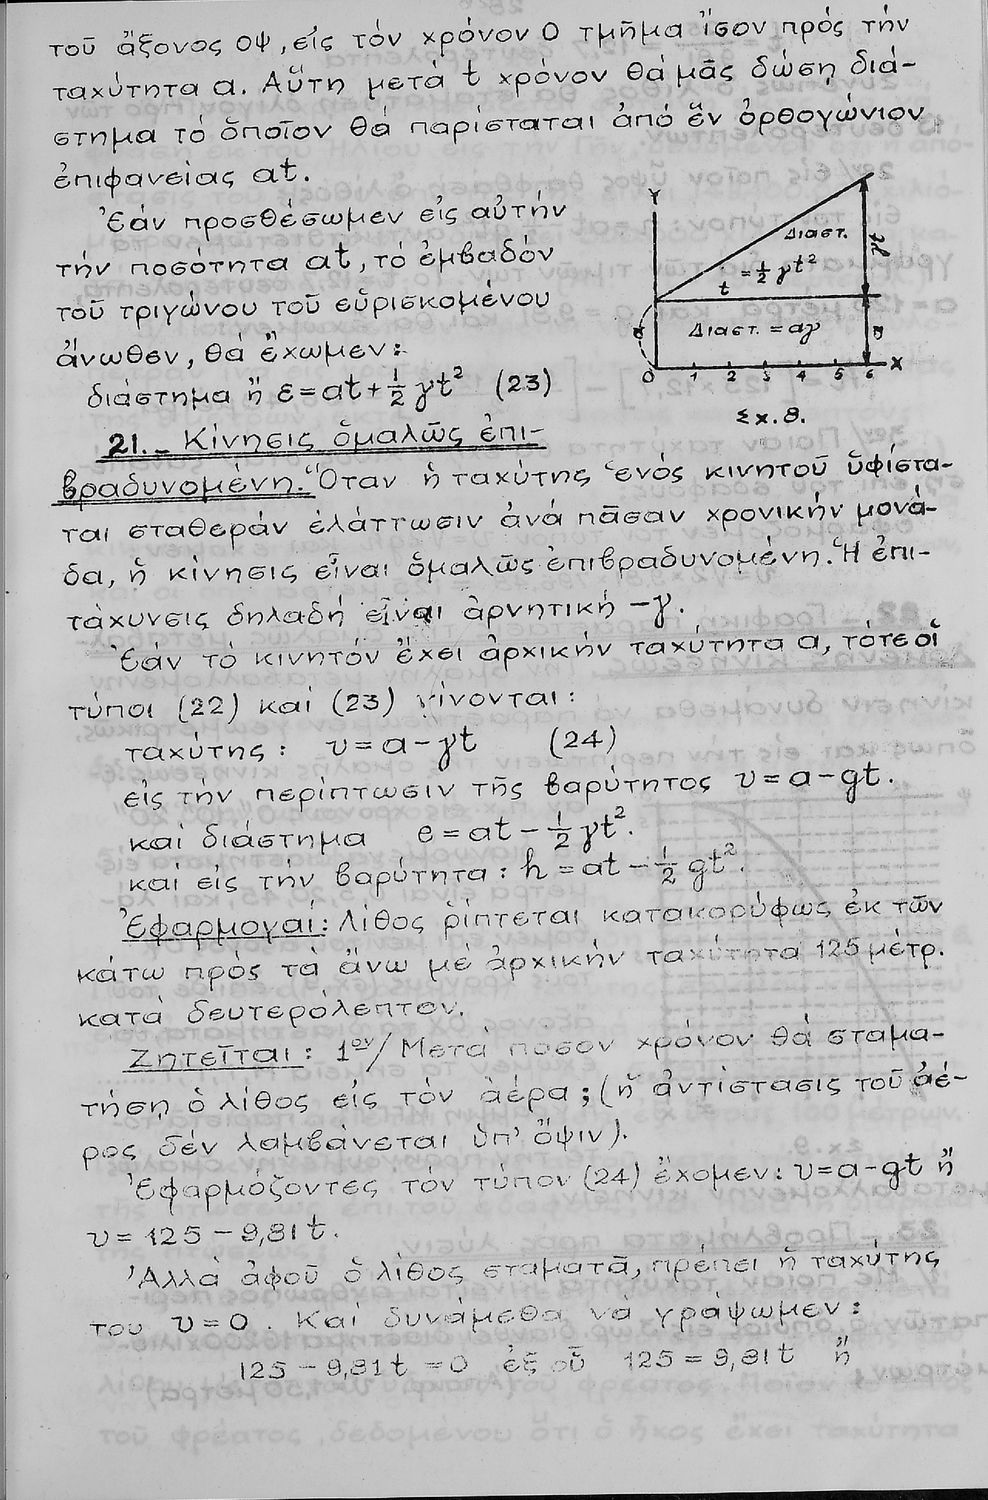 τοῦ ἄξονος οψ, εἰς τόν χρόνον 0 τμῆμα ἴσον πρός τήν
ταχύτητα α. Αὕτη μετά t χρόνον θά μᾶς δώσῃ διά-
στημα τό ὁποῖον θά παρίσταται ἀπό ἕν ὀρθογώνιον
ἐπιφανείας αt.
Ἐάν προσθέσωμεν εἰς αὐτήν
τήν ποσότητα αt, τό ἐμβαδόν
τοῦ τριγώνου τοῦ εὑρισκομένου
ἄνωθεν, θά ἔχωμεν:
διάστημα ἤ ε = αt + ½ γt² (23)
Υ
Διαστ.
t = ½ γt²
γt
α
Διαστ. = αγ
α
0 1 2 3 4 5 6 Χ
Σχ. 8.
21. – Κίνησις ὁμαλῶς ἐπι-
βραδυνομένη. Ὅταν ἡ ταχύτης ἑνός κινητοῦ ὑφίστα-
ται σταθεράν ἐλάττωσιν ἀνά πᾶσαν χρονικήν μονά-
δα, ἡ κίνησις εἶναι ὁμαλῶς ἐπιβραδυνομένη. Ἡ ἐπι-
τάχυνσις δηλαδή εἶναι ἀρνητική –γ.
Ἐάν τό κινητόν ἔχει ἀρχικήν ταχύτητα α, τότε οἱ
τύποι (22) καί (23) γίνονται:
ταχύτης: υ = α – γt (24)
εἰς τήν περίπτωσιν τῆς βαρύτητος υ = α – gt.
καί διάστημα e = αt – ½ γt².
καί εἰς τήν βαρύτητα: h = αt – ½ gt².
Ἐφαρμογαί: Λίθος ῥίπτεται κατακορύφως ἐκ τῶν
κάτω πρός τά ἄνω μέ ἀρχικήν ταχύτητα 125 μέτρ.
κατά δευτερόλεπτον.
Ζητεῖται: 1ον/ Μετά πόσον χρόνον θά σταμα-
τήσῃ ὁ λίθος εἰς τόν ἀέρα; (ἡ ἀντίστασις τοῦ ἀέ-
ρος δέν λαμβάνεται ὑπ' ὄψιν).
Ἐφαρμόζοντες τόν τύπον (24) ἔχομεν: υ = α – gt ἤ
υ = 125 – 9,81 t.
Ἀλλά ἀφοῦ ὁ λίθος σταματᾶ, πρέπει ἡ ταχύτης
του υ = 0. Καί δυνάμεθα νά γράψωμεν:
125 – 9,81 t = 0 ἐξ οὗ 125 = 9,81 t ἤ